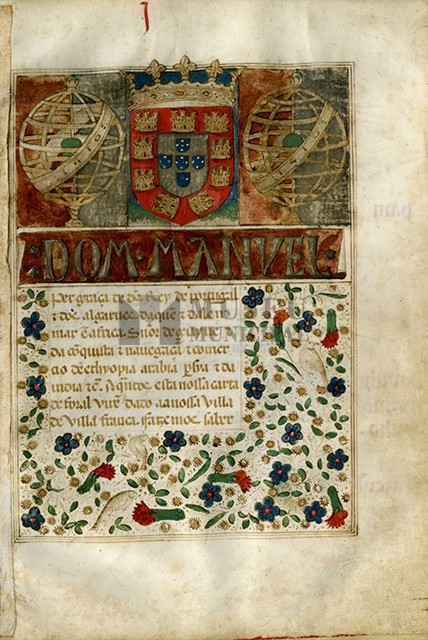 DOM · MANVEL ·
Per graça de ds Rey de portugal
⁊ dos algarues daquē ⁊ dalē no
mar ē africa Snor de guinee ⁊
da cōquista ⁊ nauegaçā ⁊ comer
çio dethyopia arabia persia ⁊ da
india A quātos esta nossa carta
de foral virē dado aa nossa villa
de villa franca fazemos saber
MUSEU
MUNICIPAL